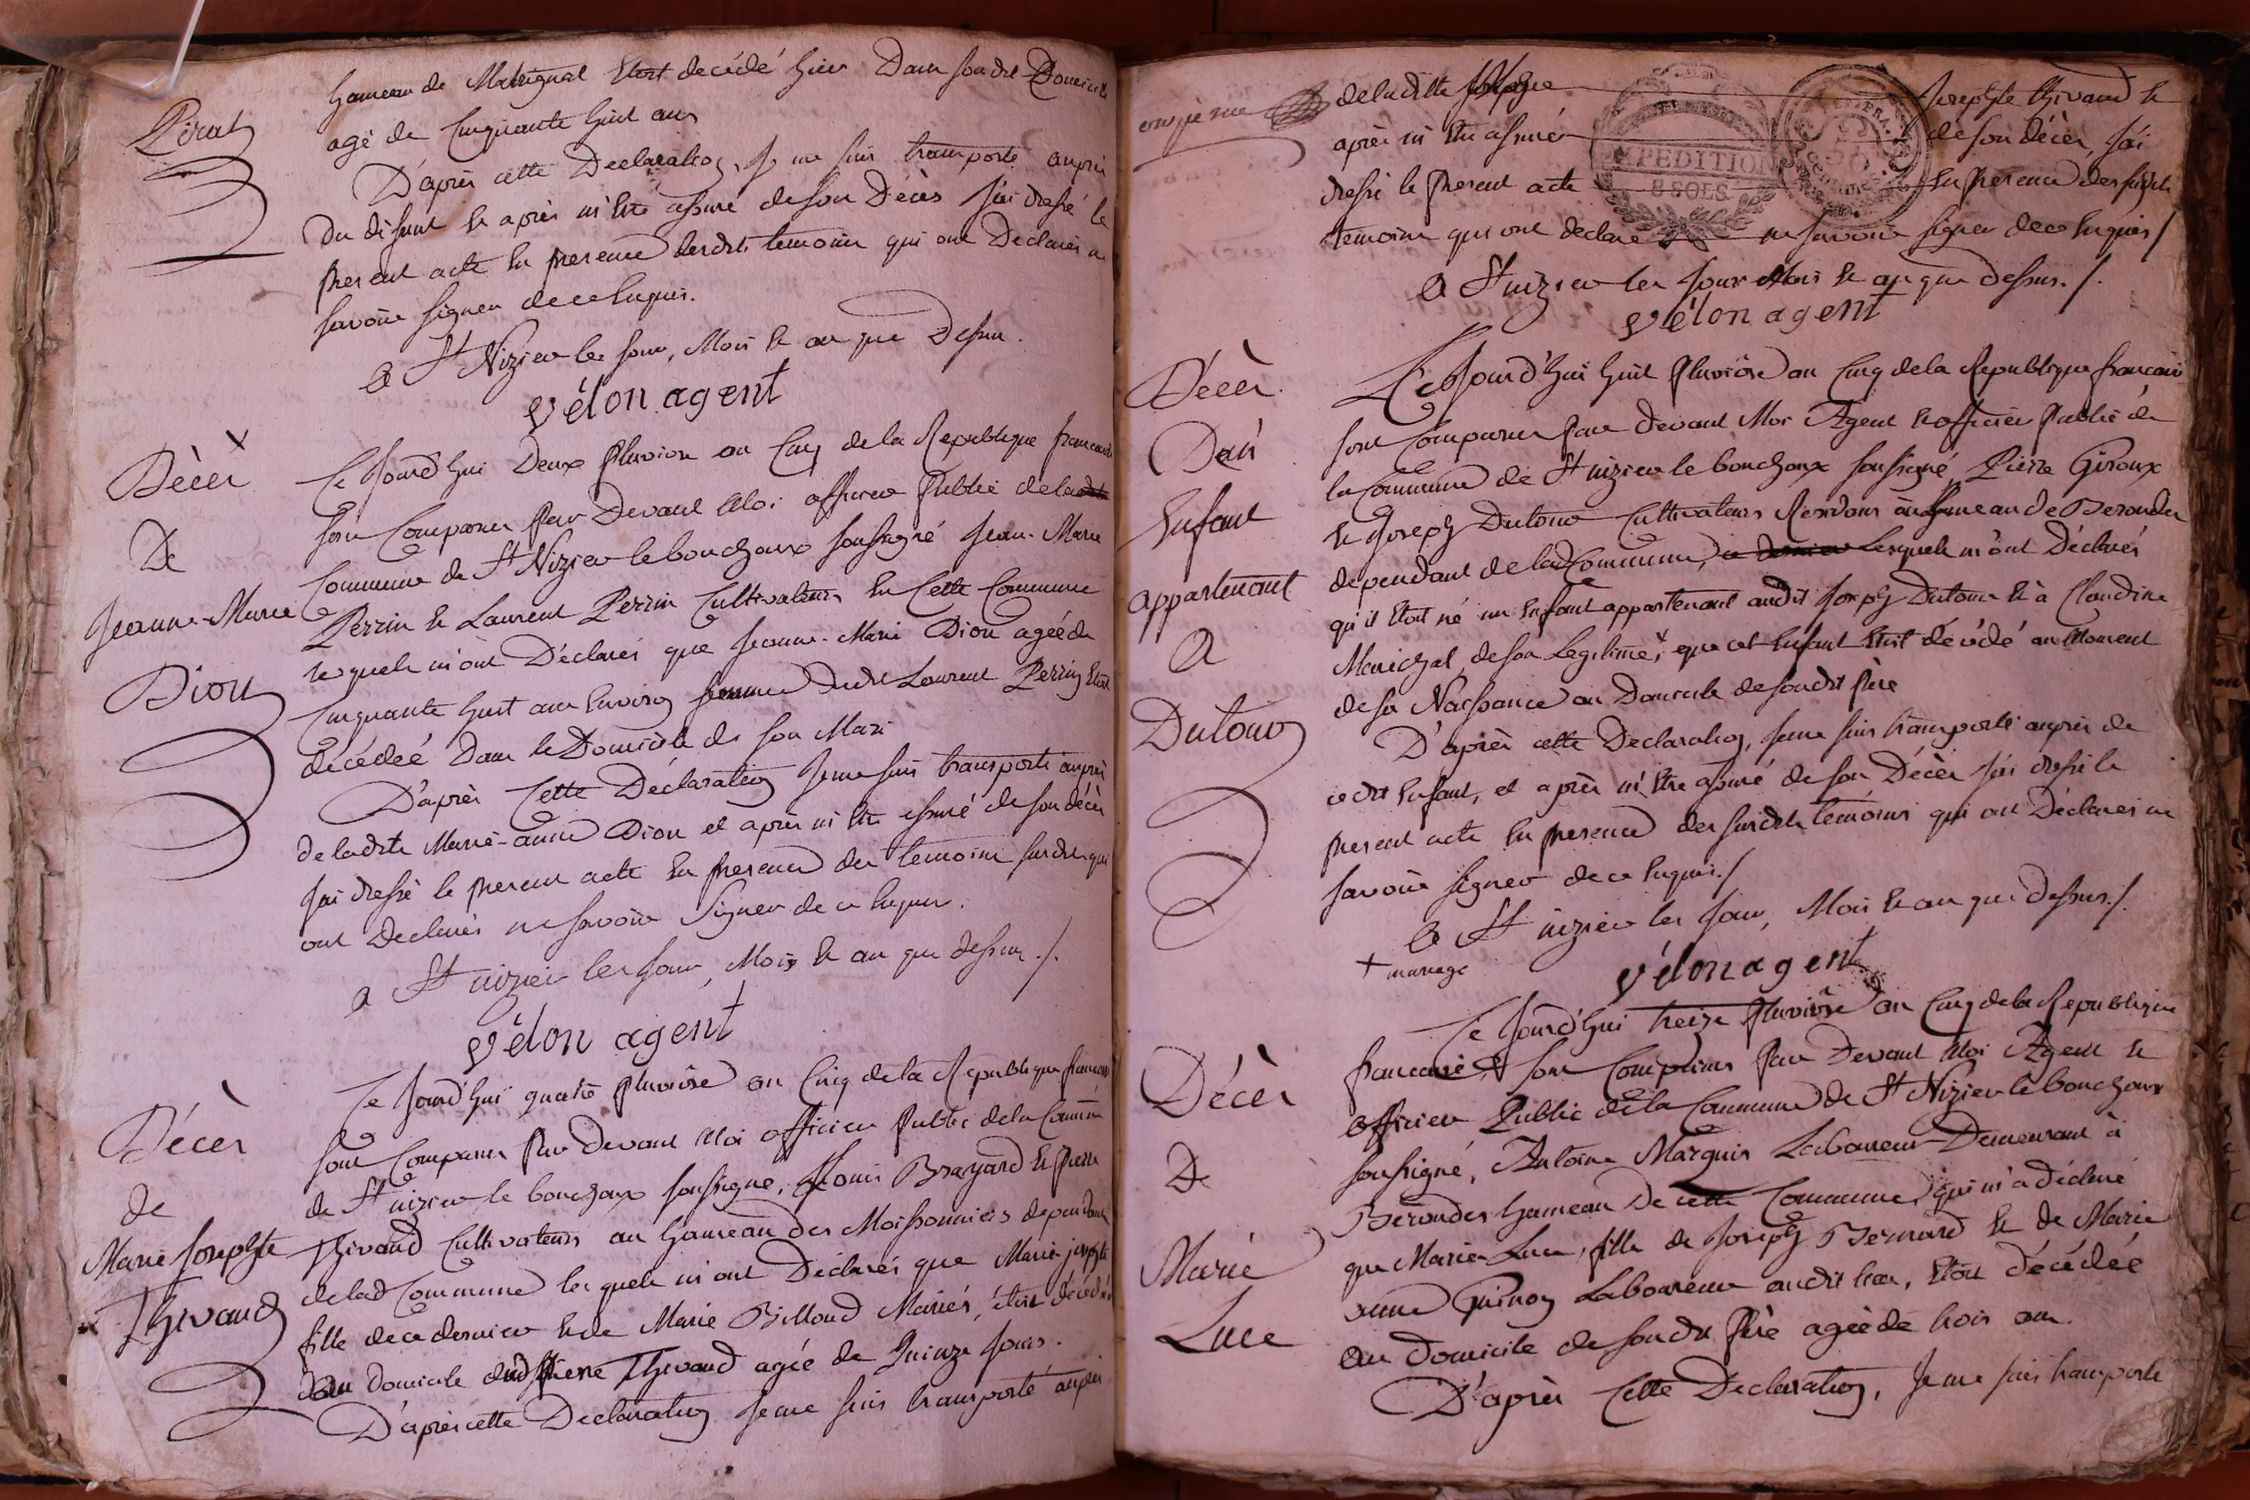 Pirat
hameau de Matrignat etoit decédé hier Dans son dit Domicile
agé de Cinquante huit ans
D'après cette Declaration, Je me suis transporté auprès
du défunt et après m'être assuré de son Décès J'ai dressé le
present acte en presence desdits temoins qui ont Declarés ne
savoir signer de ce enquis.
a St Nizier les jour, Mois et an que Dessus.
vélon agent
Décès
De
Jeanne-Marie
Dion
Ce Jourd'hui Deux Pluviose an Cinq de la Republique francaise
sont Comparus Par Devant Moi officier Public de ladite
Commune de St Nizier le bouchoux soussigné Jean-Marie
Perrin et Laurent Perrin Cultivateurs en Cette Commune
lesquels m'ont Déclarés que Jeanne-Marie Dion agée de
Cinquante huit ans environ femme dudit Laurent Perrin etoit
decédée Dans le Domicile de son Mari
D'après Cette Déclaration Je me suis transporté auprès
de ladite Marie-anne Dion et après m'être assuré de son décès
J'ai dressé le present acte en presence des temoins susdits qui
ont Declarés ne savoir signer de ce enquis.
a St nizier les jour, Mois et an que dessus ./.
vélon agent
Décès
de
Marie Josephte
Thivaud
Ce Jourd'hui quatre Pluviose an Cinq de la Republique francaise
sont Comparus Par devant Moi officier Public de la Commune
de St nizier le bouchoux soussigné, Louis Brayard et Pierre
Thivaud Cultivateurs au hameau des Moissonniers dependant
de lad Commune lesquels m'ont Déclarés que Marie josephte
fille de ce dernier et de Marie Billoud Mariés, étoit décédée
au domicile dud Pierre Thivaud agée de Quinze jours.
D'après cette Declaration Je me suis transporté auprès
de laditte Josephte Thivaud et
après m'être assuré de son décès, J'ai
dressé le present acte en presence des susdits
EXPEDITION
8 SOLS
temoins qui ont declaré ne savoir signer de ce enquis /
a St nizier les jour Mois et an que dessus ./.
vélon agent
Décès
D'un
enfant
appartenant
a
Dutour
Ce Jourd'hui huit Pluviose an Cinq de la Republique francaise
sont Comparus Par devant Moi Agent et officier Public de
la Commune de St nizier le bouchoux soussigné, Pierre Giroux
et Joseph Dutour Cultivateurs Residans au hameau de Beroudes
dependant de lad Commune, ce dernier Lesquels m'ont Déclarés
qu'il etoit né un enfant appartenant audit Joseph Dutour et à Claudine
Marichal de son Legitime + que cet enfant etoit décédé au Moment
de sa Naissance au Domicile de son dit Père
D'après cette Declaration, Je me suis transporté auprès de
ce dit enfant, et après m'être assuré de son Décès J'ai dressé le
present acte en presence des susdits temoins qui ont Déclarés ne
savoir signer de ce enquis ./
a St nizier les jour, Mois et an que dessus ./.
+ mariage
vélon agent
Décès
De
Marie
Luce
Ce Jourd'hui treize Pluviose an Cinq de la Republique
francaise, sont Comparus Par Devant Moi Agent et
officier Public de la Commune de St Nizier le bouchoux
soussigné, Antoine Marguin Laboureur Demeurant à
Beroudes hameau de cette Commune, qui m'a déclaré
que Marie Luce, fille de Joseph Bernard et de Marie
anne Guinon Laboureur audit lieu, etoit décédée
au domicile de son dit Père agée de trois ans.
D'après Cette Declaration, Je me suis transporté